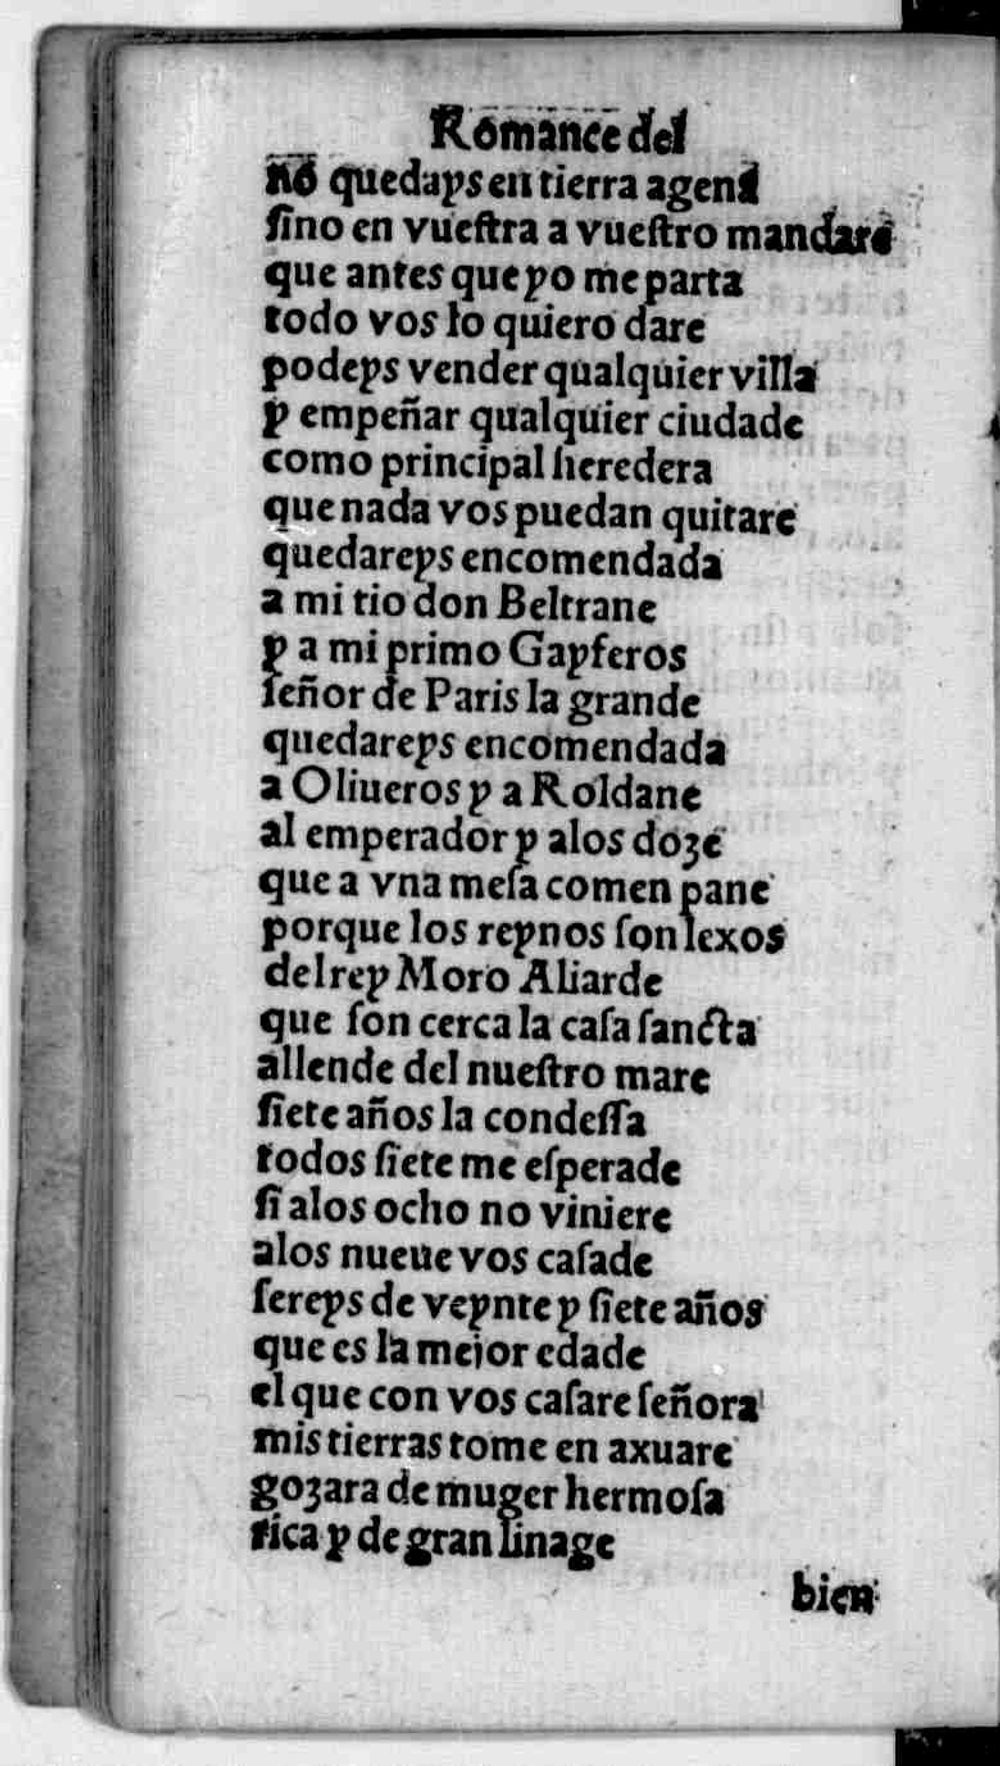 Romance del
no quedays en tierra agena
ſino en vueſtra a vueſtro mandare
que antes que yo me parta
todo vos lo quiero dare
podeys vender qualquier villa
y empeñar qualquier ciudade
como principal heredera
que nada vos puedan quitare
quedareys encomendada
a mi tio don Beltrane
y a mi primo Gayferos
ſeñor de Paris la grande
quedareys encomendada
a Oliueros y a Roldane
al emperador y alos doze
que a vna meſa comen pane
porque los reynos ſon lexos
del rey Moro Aliarde
que ſon cerca la caſa ſancta
allende del nueſtro mare
ſiete años la condeſſa
todos ſiete me eſperade
ſi alos ocho no viniere
alos nueue vos caſade
ſereys de veynte y ſiete años
que es la mejor edade
el que con vos caſare ſeñora
mis tierras tome en axuare
gozara de muger hermoſa
rica y de gran linage
bien